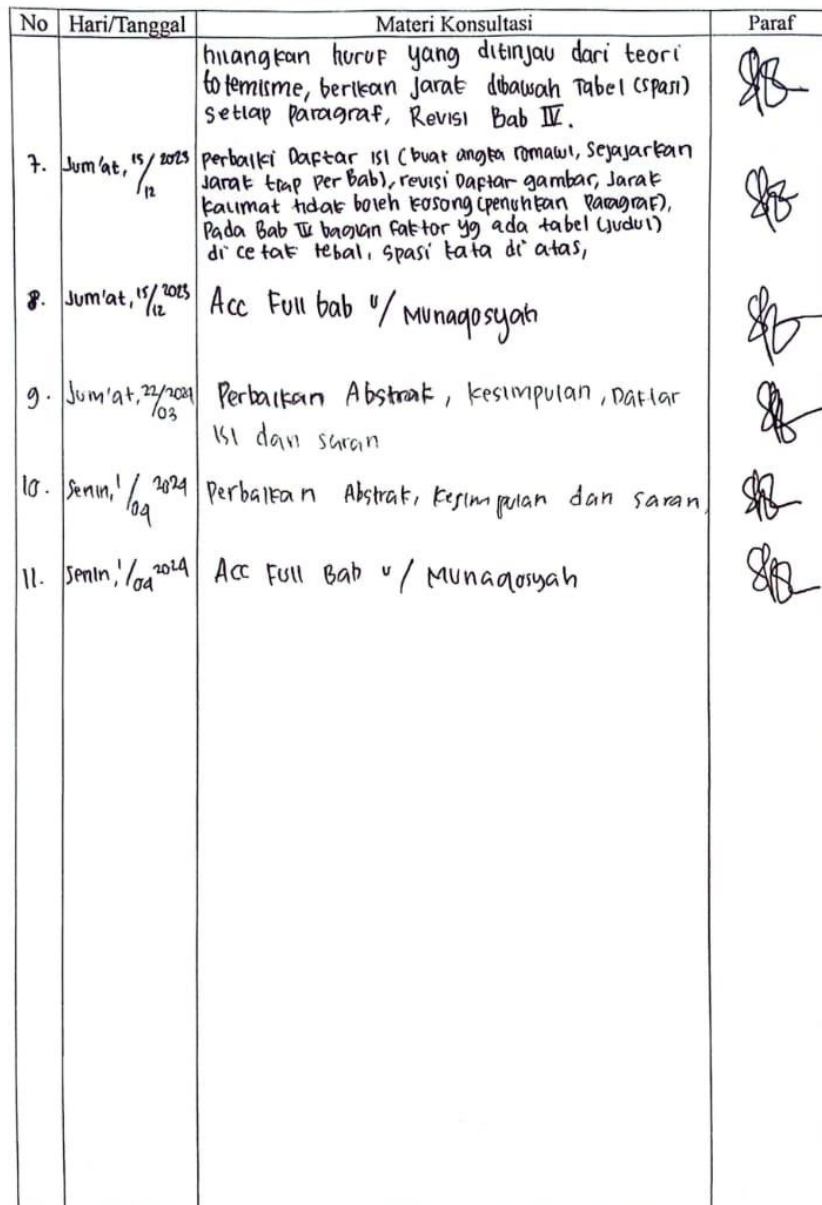 No Hari/Tanggal Materi Konsultasi Paraf
hilangkan huruf yang ditinjau dari teori
totemisme, berikan jarak dibawah Tabel (spasi)
setiap paragraf, Revisi Bab IV.
7. Jum'at, 15/12 2023 perbaiki Daftar isi (buat angka romawi, Sejajarkan
Jarak tiap per Bab), revisi Daftar gambar, Jarak
kalimat tidak boleh kosong (penuhkan Paragraf),
Pada Bab IV bagian faktor yg ada tabel (judul)
di cetak tebal, spasi kata di atas,
8. Jum'at, 15/12 2023 Acc Full bab u/ Munaqosyah
9. Jum'at, 22/03 2024 Perbaikan Abstrak, kesimpulan, Daftar
isi dan saran
10. Senin, 1/04 2024 Perbaikan Abstrak, kesimpulan dan saran,
11. Senin, 1/04 2024 Acc Full Bab u/ Munaqosyah